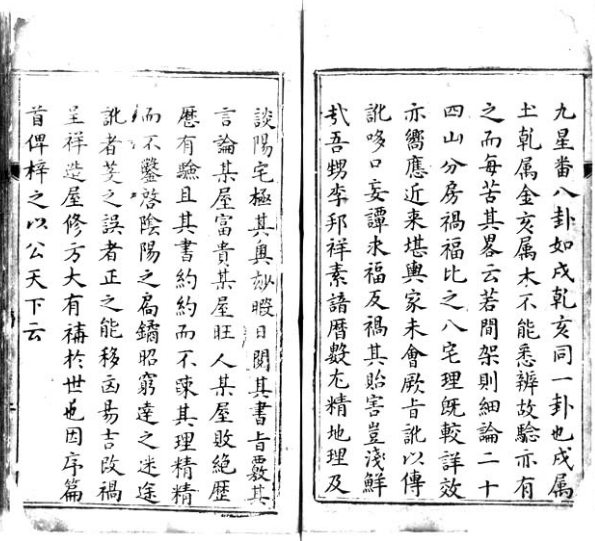 九星番八卦如戌乾亥同一卦也戌属
土乹属金亥属木不能悉辨故驗亦有
之而每苦其畧云若間架則細論二十
四山分房禍福比之八宅理旣較詳效
亦嚮應近来堪輿家未會厥旨訛以傳
訛哆口妄譚求福反禍其貽害豈淺鮮
哉吾甥李邦祥素諳曆數尤精地理及
談陽宅極其奥妙暇日閱其書旨覈其
言論某屋富貴某屋旺人某屋敗絶歴
歴有驗且其書約約而不踈其理精精
而不鑿啓陰陽之扄鐍昭窮達之迷途
訛者芟之誤者正之能移㐫昜吉改禍
呈祥造屋修方大有禆於世也因序篇
首俾梓之以公天下云